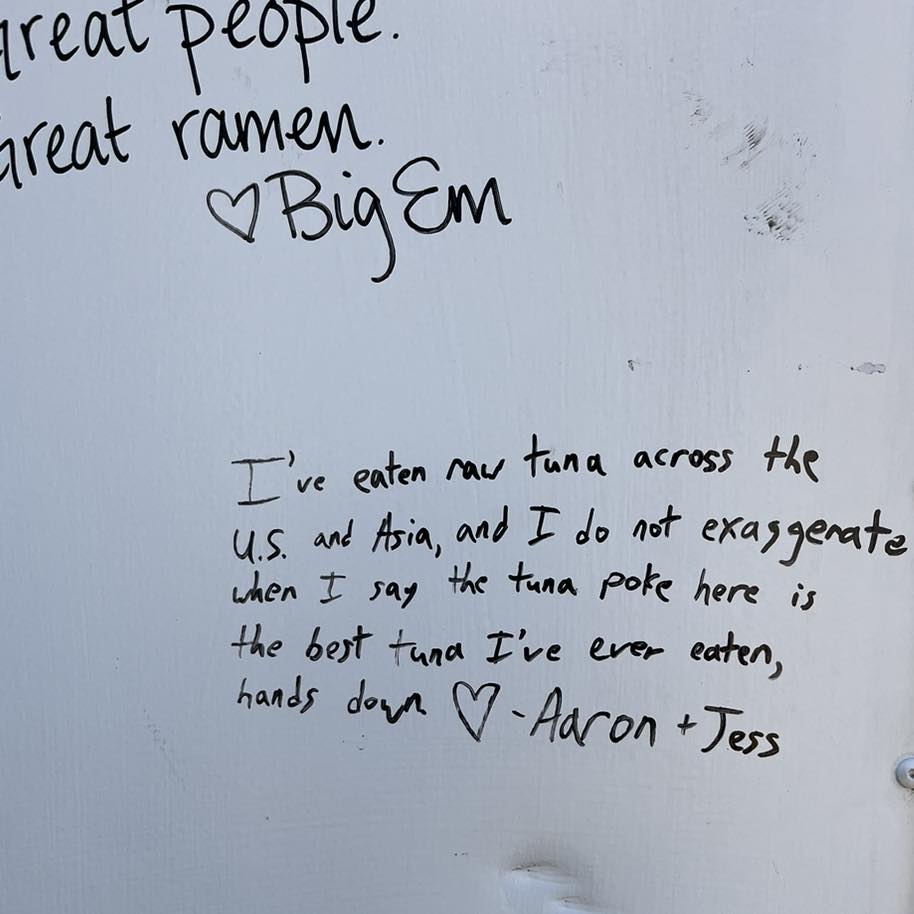 great people.
Great ramen.
♡ Big Em
I've eaten raw tuna across the
U.S. and Asia, and I do not exaggerate
when I say the tuna poke here is
the best tuna I've ever eaten,
hands down ♡ - Aaron + Jess